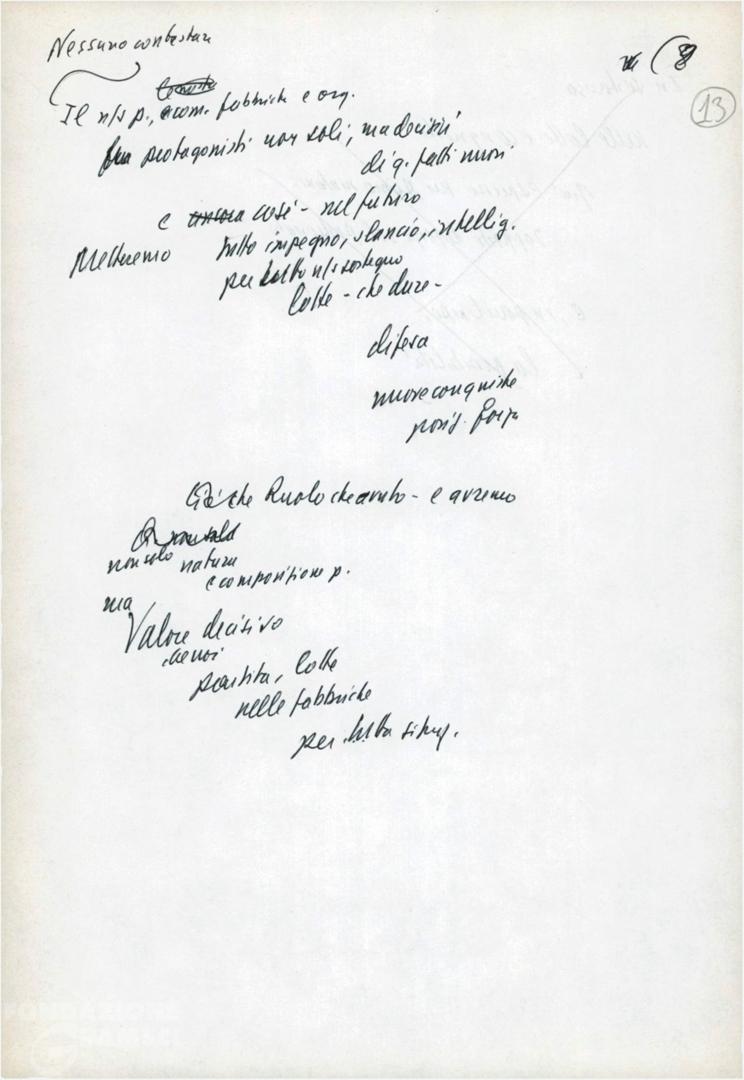 Nessuno contestare
8
13
Il n/s p., com. fabbriche e org.
protagonisti non soli, ma decisivi
di q. fatti nuovi
e ancora così - nel futuro
Metteremo tutto impegno, slancio, intellig.
per tutto n/s sostegno
lotte - che dure -
difesa
nuove conquiste
posiz. forza
Ciò che Ruolo che avuto - e avremo
non solo natura
e composizione p.
ma
Valore decisivo
che noi
partita, lotte
nelle fabbriche
per tutta situaz.
FONDAZIONE
GRAMSCI